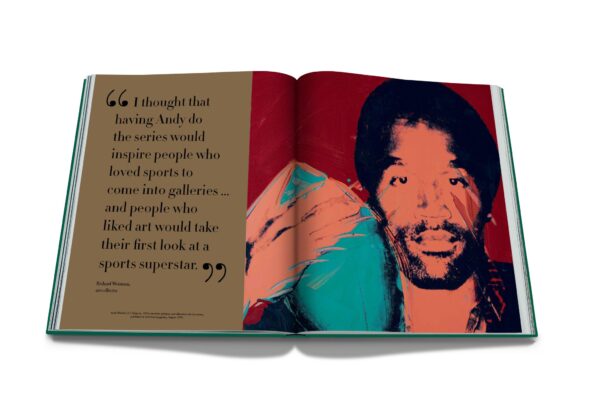 “ I thought that
having Andy do
the series would
inspire people who
loved sports to
come into galleries ...
and people who
liked art would take
their first look at a
sports superstar. ”
Richard Weisman,